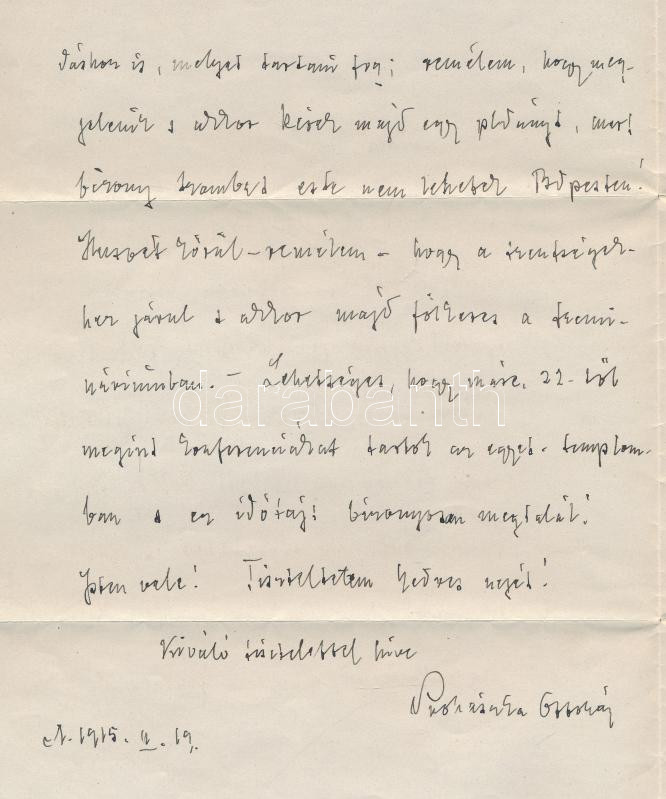 dáshoz is, melyet tartani fog; remélem, hogy meg-
jelenik s akkor kérek majd egy példányt, mert
bizony szombat este nem lehetek Bdpesten!
Husvét körül – remélem – hogy a szentségek-
hez járul s akkor majd fölkeres a szemi-
náriumban. – Lehetséges, hogy márc. 22-től
megint konferenciákat tartok az egyet. templom-
ban s ez időtájt bizonyosan megtalál!
Isten vele! Tiszteltetem kedves nejét!
Kiváló tisztelettel híve
Prohászka Ottokár
1915. II. 19.
darabanth